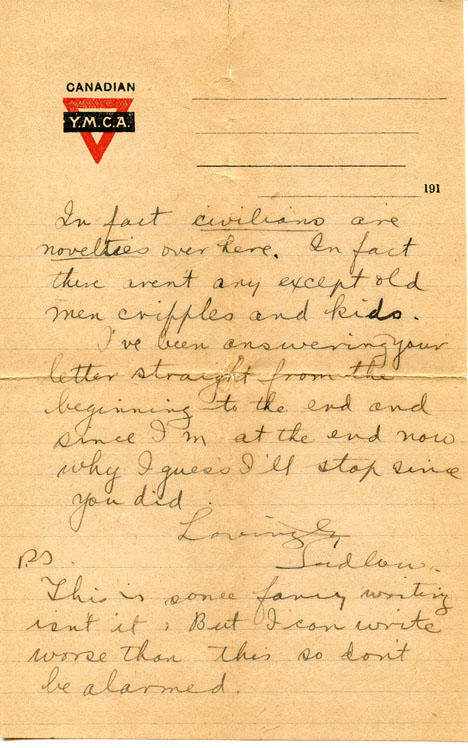 CANADIAN
Y.M.C.A.
191
In fact civilians are
novelties over here. In fact
there arent any except old
men cripples and kids.
I've been answering your
letter straight from the
beginning to the end and
since I'm at the end now
why I guess I'll stop since
you did.
Lovingly
Sudlow.
P.S.
This is some fancy writing
isn't it; But I can write
worse than this so don't
be alarmed.